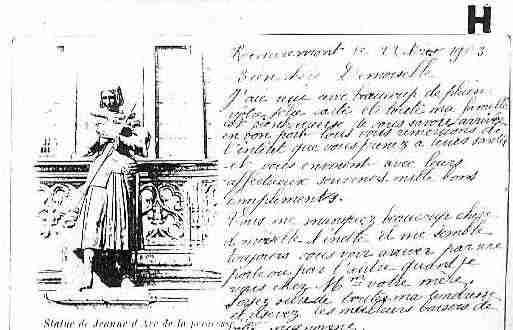 H
Remiremont le 22 Nov 1903
Bien chère Demoiselle
J'ai eu avec beaucoup de plaisir
votre carte et toute ma famille
est bien heureuse de vous savoir arrivée
en bon port tous vous remercions de
l'intérêt que vous prenez à leurs santés
et vous envoient avec leurs
affectueux souvenirs mille bons
compliments.
Vous me manquez beaucoup chère
demoiselle et il me semble
toujours vous voir arriver par une
porte ou par l'autre quand je
vais chez Mme votre mère.
Soyez sûre de toute ma tendresse
et recevez les meilleurs baisers de
Statue de Jeanne d'Arc de la